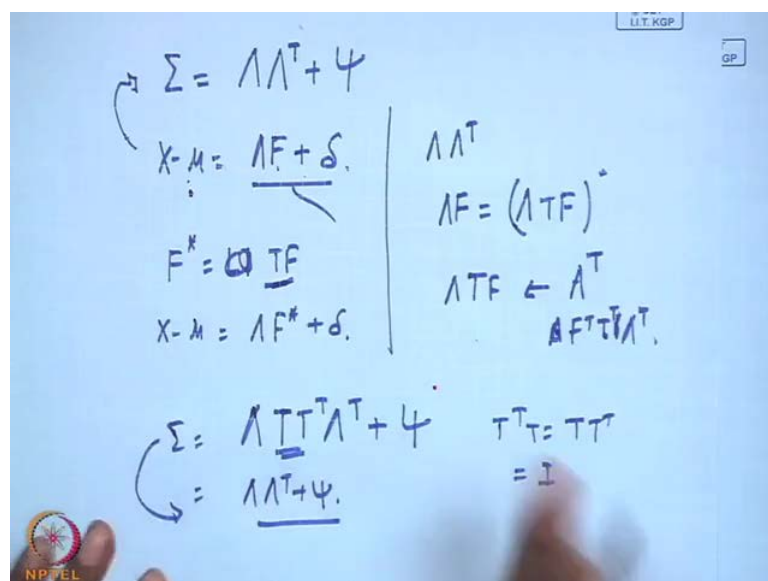 I.I.T. KGP
GP
Σ = ΛΛᵀ + Ψ
X-μ = ΛF + δ.
F* = TF
X-μ = ΛF* + δ.
ΛΛᵀ
ΛF = (ΛTF)
ΛTF ← Λᵀ
FᵀTᵀΛᵀ.
Σ = ΛTTᵀΛᵀ + Ψ
= ΛΛᵀ+Ψ.
TᵀT = TTᵀ
= I
NPTEL